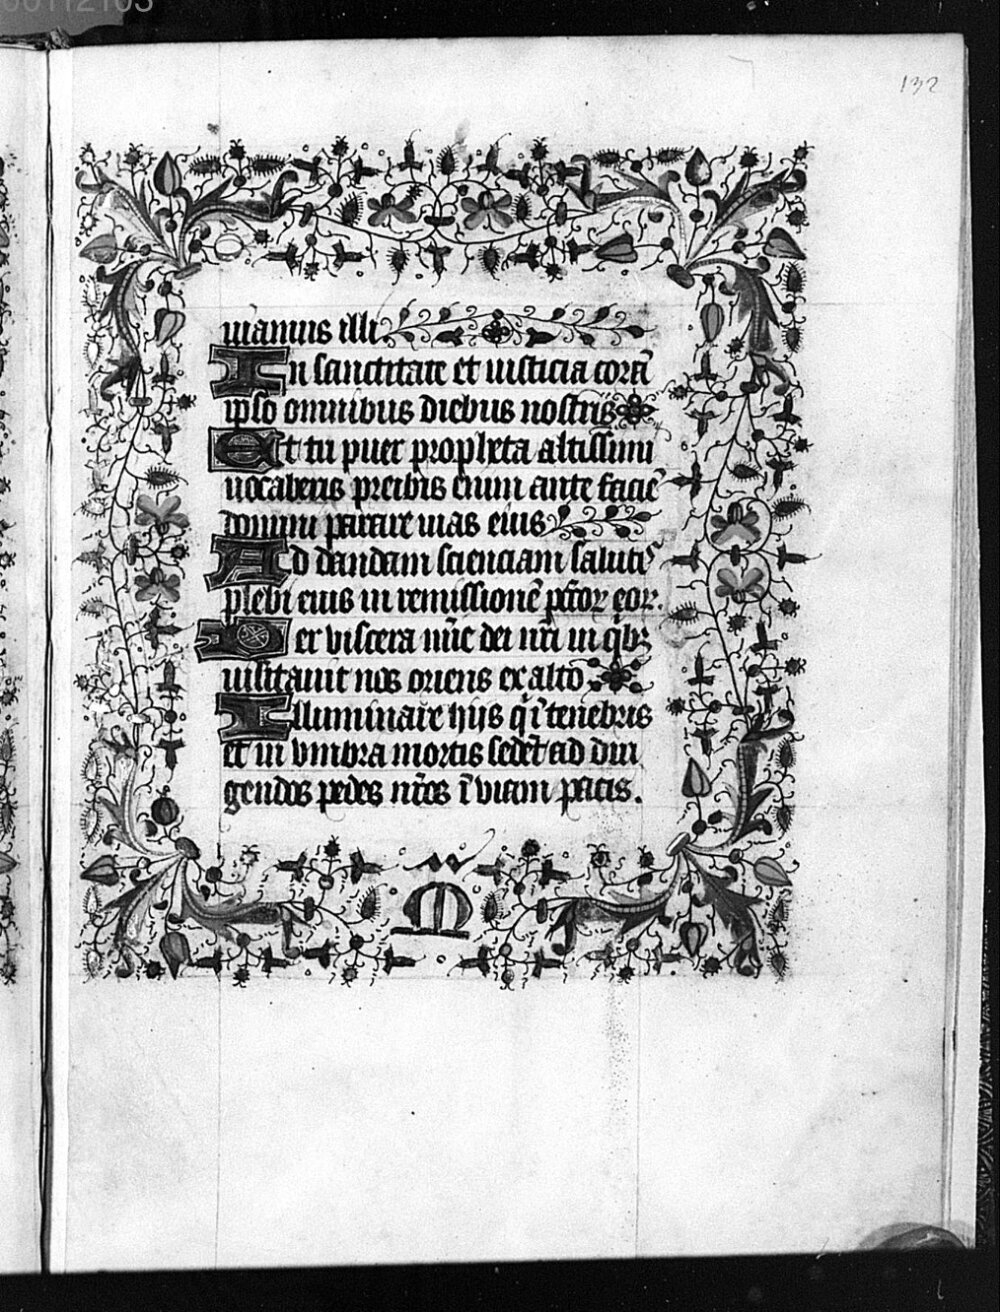 132
uiamus illi.
In sanctitate et iusticia corā
ipso omnibus diebus nostris
Et tu puer propheta altissimi
uocaberis preibis enim ante faciē
domini parare uias eius
Ad dandam scienciam saluti᷒
plebi eius in remissionē pc̄to℞ eo℞.
Per viscera mīe dei nr̄i in qͥb᷒
uisitauit nos oriens ex alto
Illuminare hijs qͥ ī tenebris
et in vmbra mortis sedēt ad diri
gendos pedes nr̄os ī viam pacis.
M